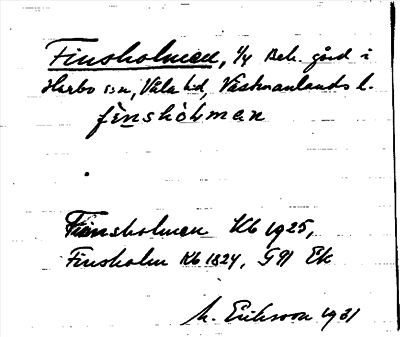 Finsholmen, 1/4 Beb. gård i
Harbo sn, Våla hd, Västmanlands l.
fènshòlman
Finnsholmen Kb 1925,
Finsholm Kb 1824, GN Ek
M. Eriksson 1931